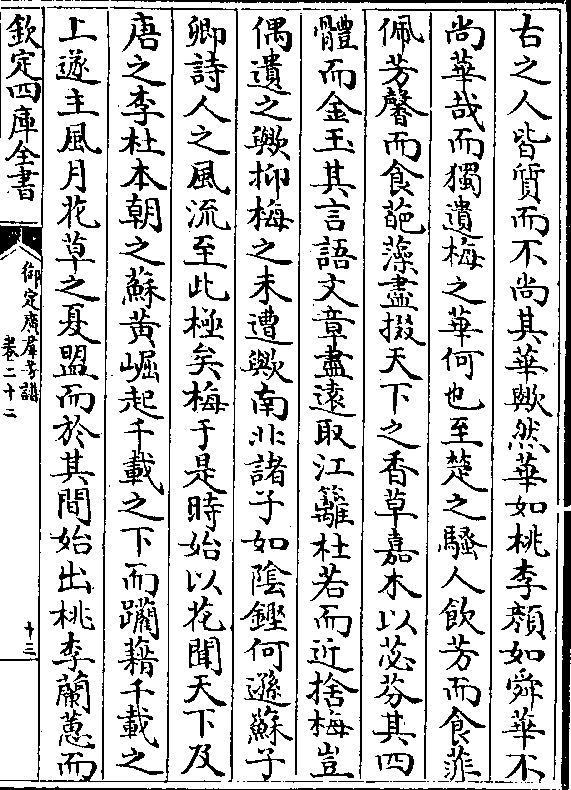 古之人皆質而不尚其華歟然華如桃李顔如舜華不
尚華哉而獨遺梅之華何也至楚之騷人飲芳而食菲
佩芳馨而食葩藻盡掇天下之香草嘉木以苾芬其四
體而金玉其言語文章盡遠取江蘺杜若而近捨梅豈
偶遺之歟抑梅之未遭歟南北諸子如陰鏗何遜蘇子
卿詩人之風流至此極矣梅于是時始以花聞天下及
唐之李杜本朝之蘇黃崛起千載之下而躪藉千載之
上遂主風月花草之夏盟而於其間始出桃李蘭蕙而
欽定四庫全書
御定廣羣芳譜
卷二十二
十三